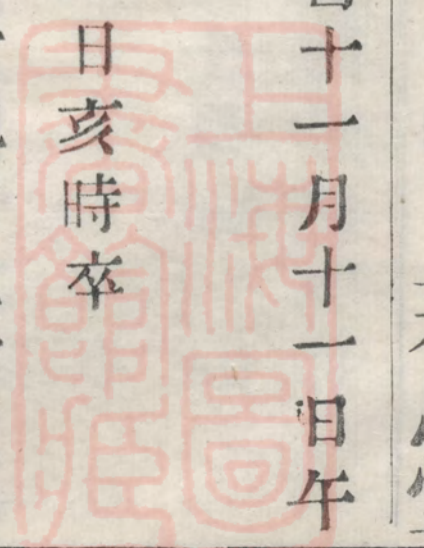 十一月十一日午
日亥時卒
上海圖
書館